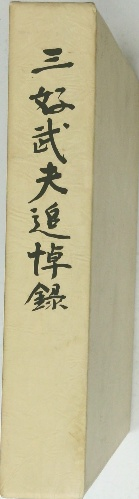 三好武夫追悼録